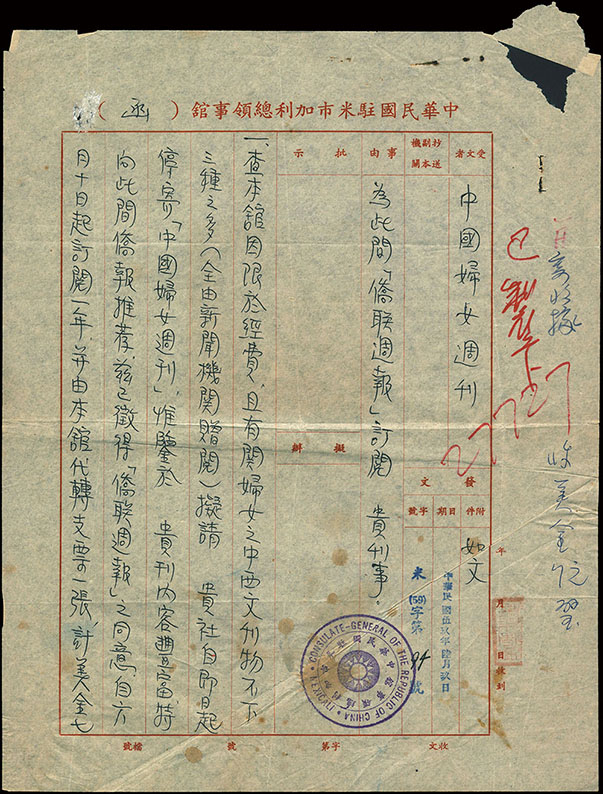 中華民國駐米市加利總領事館（函）
收美金
已
年 月 日收到
受文者 中國婦女週刊
附件 如文
抄送副本機關
發文
日期
字號 米(59)字第94號
事由 為此間「僑联週報」訂閱 貴刊事。
批示
擬辦
CONSULATE-GENERAL OF THE REPUBLIC OF CHINA
一、查本舘因限於經費，且有関婦女之中西文刊物不下
三種之多（全由新聞機関贈閱）擬請 貴社自即日起
停寄「中國婦女週刊」，惟鑒於 貴刊內容豐富特
向此間僑報推荐，茲已徵得「僑联週報」之同意，自六
月十日起訂閱一年并由本舘代轉支票一張，計美金七
收文 字第 號 檔號